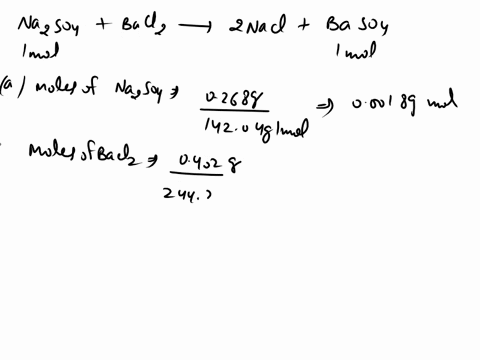 Na2SO4 + BaCl2 → 2NaCl + BaSO4
1mol 1mol
(a) moles of Na2SO4 ⇒ 0.268g / 142.04g/mol ⇒ 0.00189 mol
Moles of BaCl2 ⇒ 0.402 g / 244.2